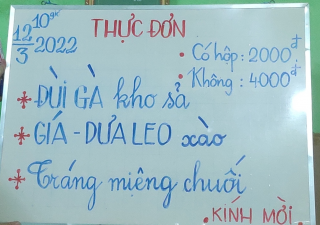 10gh
12/3 2022
THỰC ĐƠN
• Có hộp: 2000đ
• Không: 4000đ
* ĐÙI GÀ kho sả
* GIÁ - DƯA LEO xào
* Tráng miệng chuối
• KÍNH MỜI.